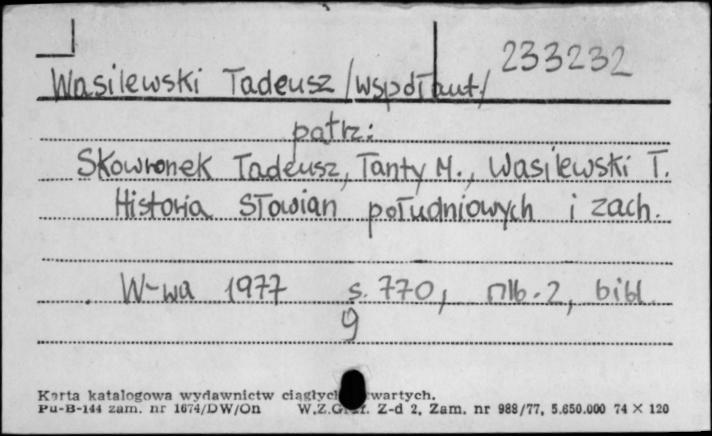 233232
Wasilewski Tadeusz /współaut./
patrz:
Skowronek Tadeusz, Tanty M., Wasilewski T.
Historia Słowian południowych i zach.
W-wa 1977 s. 770, nlb. 2, bibl.
9
Karta katalogowa wydawnictw ciągłych wartych.
Pu-B-144 zam. nr 1674/DW/On W.Z.Graf. Z-d 2, Zam. nr 988/77, 5.650.000 74 × 120